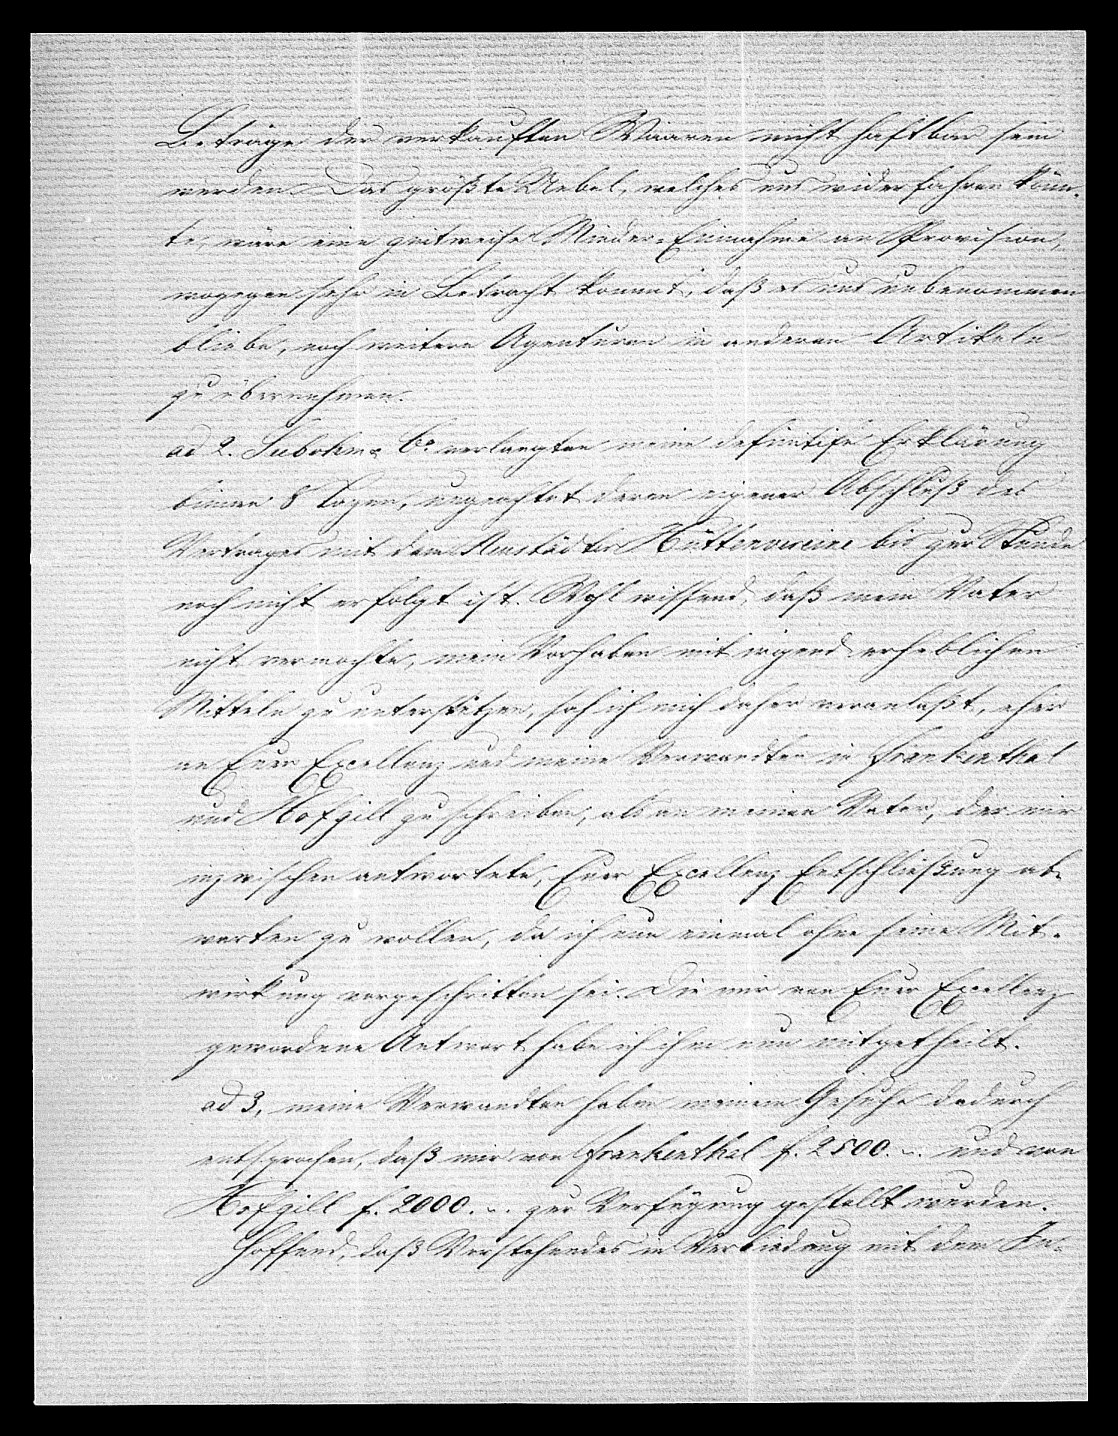 Beträge der verkauften Waaren nicht haftbar sein
werden. Das größte Uebel, welches uns widerfahren könn-
te, wäre eine zeitweise Minder-Einnahme an Provision,
wogegen sehr in Betracht kommt, daß es uns unbenommen
bliebe, noch weitere Agenturen in anderen Artikeln
zu übernehmen.
ad 2. & Co verlangten meine definitife Erklärung
binnen 8 Tagen, ungeachtet deren eigener Abschluß des
Vertrages mit dem Neustädter Hüttenvereine bis zur Stunde
noch nicht erfolgt ist. Wohl wissend, daß mein Vater
nicht vermochte, mein Vorhaben mit irgend erheblichen
Mitteln zu unterstützen, sah ich mich daher veranlaßt, eher
an Euer Excellenz und meine Verwandten in Frankenthal
und Hofgill zu schreiben, als an meinen Vater, der mir
inzwischen antwortete, Euer Excellenz Entschließung ab-
warten zu wollen, da ich nun einmal ohne seine Mit-
wirkung vorgeschritten sei. Die mir von Euer Excellenz
gewordene Antwort habe ich ihm nun mitgetheilt.
ad 3, meine Verwandten haben meinem Gesuche dadurch
entsprochen, daß mir von Frankenthal f. 2500. -. und von
Hofgill f. 2000. -. zur Verfügung gestellt wurden.
Hoffend, daß Vorstehendes in Verbindung mit dem In-